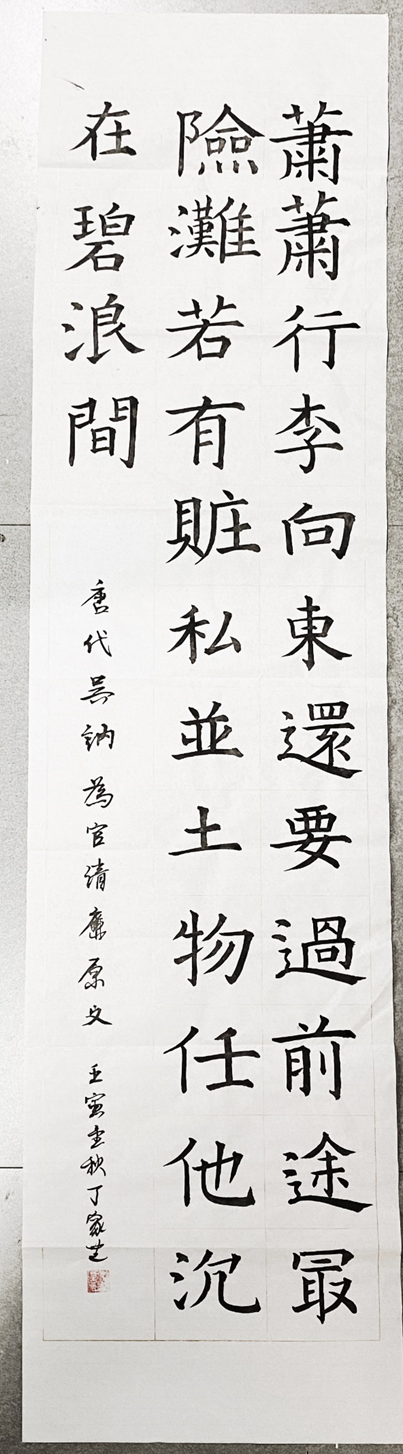 蕭蕭行李向東還要過前途冣
險灘若有賍私並土物任他沉
在碧浪間
唐代吴訥為官清廉原文 壬寅圭秋丁家芝